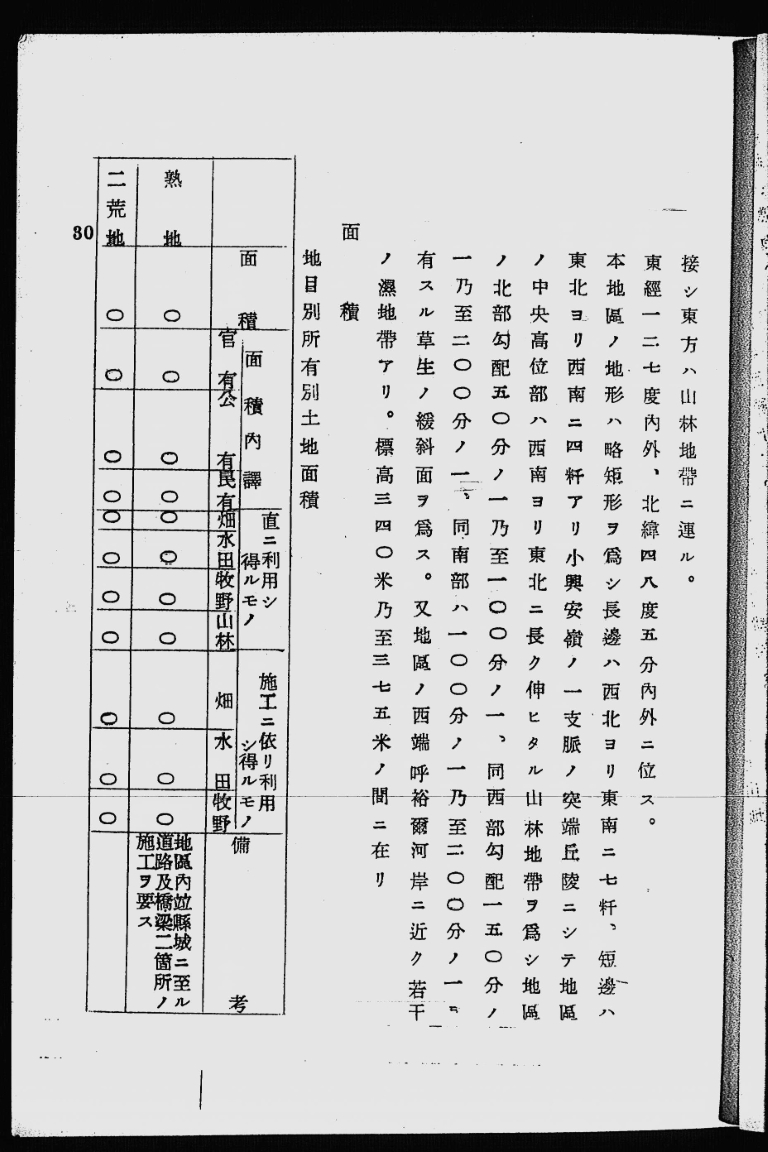 接シ東方ハ山林地帶ニ連ル。
東經一二七度內外、北緯四八度五分內外ニ位ス。
本地區ノ地形ハ略矩形ヲ爲シ長邊ハ西北ヨリ東南ニ七粁、短邊ハ
東北ヨリ西南ニ四粁アリ小興安嶺ノ一支脈ノ突端丘陵ニシテ地區
ノ中央高位部ハ西南ヨリ東北ニ長ク伸ヒタル山林地帶ヲ爲シ地區
ノ北部勾配五〇分ノ一乃至一〇〇分ノ一、同西部勾配一五〇分ノ
一乃至二〇〇分ノ一、同南部ハ一〇〇分ノ一乃至二〇〇分ノ一ヲ
有スル草生ノ緩斜面ヲ爲ス。又地區ノ西端呼裕爾河岸ニ近ク若干
ノ濕地帶アリ。標高三四〇米乃至三七五米ノ間ニ在リ
面積
地目別所有別土地面積
面積
面積內譯
官有
公有
民有
直ニ利用シ
得ルモノ
畑
水田
牧野
山林
施工ニ依リ利用
シ得ルモノ
畑
水田
牧野
備考
熟地
〇
〇
〇
〇
〇
〇
〇
〇
〇
〇
〇
地區內竝縣城ニ至ル
道路及橋梁二箇所ノ
施工ヲ要ス
二荒地
〇
〇
〇
〇
〇
〇
〇
〇
〇
〇
〇
30